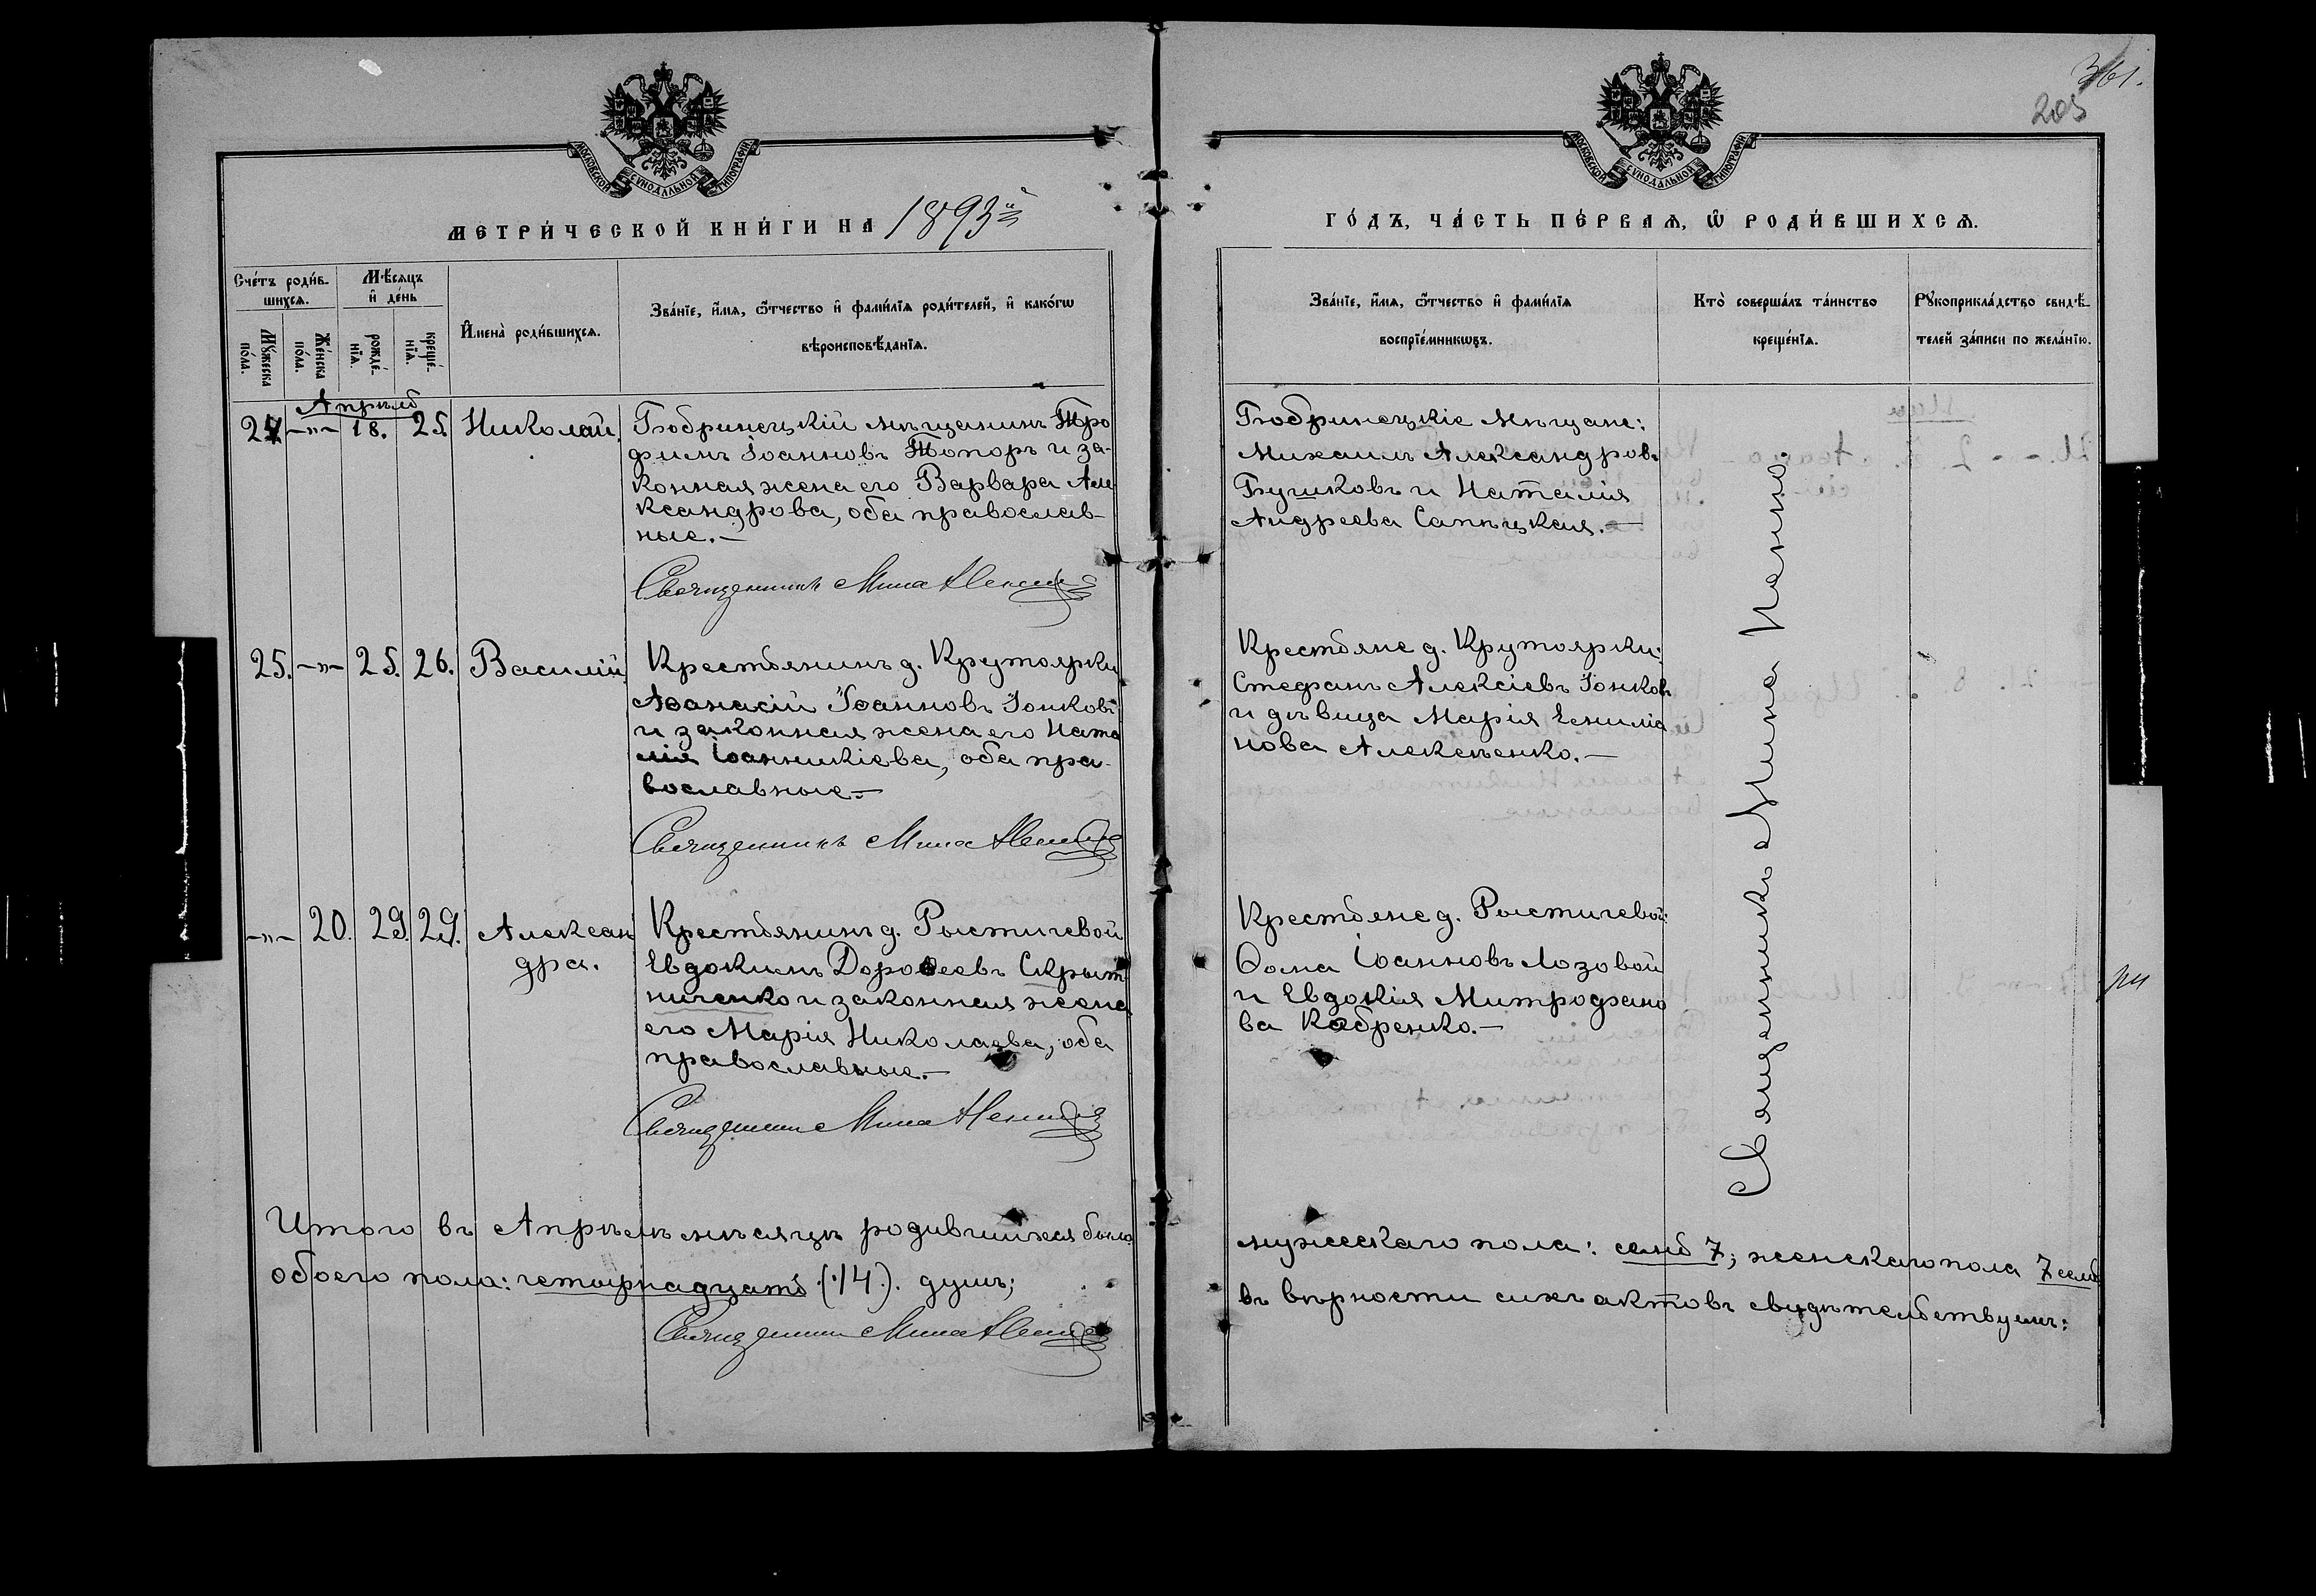 361.
203
МОСКОВСКОЙ СѴНОДАЛЬНОЙ ТИПОГРАФІИ
МОСКОВСКОЙ СѴНОДАЛЬНОЙ ТИПОГРАФІИ
МЕТРИ́ЧЕСКОЙ КНИ́ГИ НА 1893й
ГО́ДЪ, ЧА́СТЬ ПЕ́РВАѦ, Ѽ РОДИ́ВШИХСѦ.
Сче́тъ роди́в-
шихсѧ.
Мѣ́сяцъ
и҆ де́нь
Мꙋ́жеска
по́ла.
Же́нска
по́ла.
рожде́-
нїѧ.
креще́-
нїѧ.
И҆мена̀ роди́вшихсѧ.
Зва́нїе, и҆́мѧ, ѻ҆́тчество и҆ фами́лїѧ роди́телей, и҆ како́гѡ
вѣроисповѣ́данїѧ.
Зва́нїе, и҆́мѧ, ѻ҆́тчество и҆ фами́лїѧ
воспрїе́мникѡвъ.
Кто̀ соверша́лъ та́инство
креще́нїѧ.
Рꙋкоприкла́дство свидѣ́-
телей за́писи по жела́нїю.
Апрѣль
24 —"— 18. 25. Николай. Бобринецкій мѣщанинъ Тро
фимъ Іоанновъ Топоръ и за-
конная жена его Варвара Але
ксандрова, оба православ-
ные.—
Священникъ Мина
Бобринецкіе мѣщане:
Михаилъ Александровъ
Бушковъ и Наталія
Андреева Сапѣцкая.—
25. —"— 25. 26. Василій. Крестьянинъ д. Крутоярки
Аѳанасій Іоанновъ Іонковъ
и законная жена его Ната
лія Іоанникіева, оба пра-
вославные.—
Священникъ Мина
Крестьяне д. Крутоярки:
Стефанъ Алексіевъ Іонковъ
и дѣвица Марія Емиліа
нова Алексѣенко.—
—"— 20. 29. 29. Алексан
дра.
Крестьянинъ д. Ростичевой
Евдокимъ Дороѳеевъ Скрыт
ниченко и законная жена
его Марія Николаева, оба
православные.—
Священникъ Мина
Крестьяне д. Ростичевой:
Ѳома Іоанновъ Лозовой
и Евдокія Митрофано
ва Кабренко.—
Священникъ Мина
Итого въ Апрѣлѣ мѣсяцѣ родившихся было
обоего пола: четырнадцать (14). душъ;
Священникъ Мина
мужескаго пола: семь 7; женскаго пола 7 семь
въ вѣрности сихъ актовъ свидѣтельствуемъ: